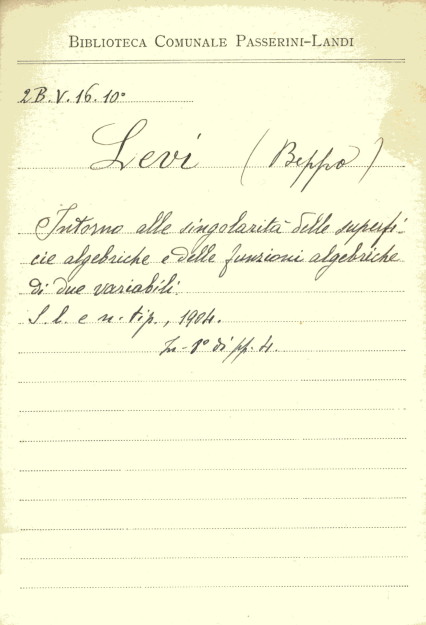 BIBLIOTECA COMUNALE PASSERINI-LANDI
2B.V.16.10°
Levi (Beppo)
Intorno alle singolarità delle superfi-
cie algebriche e delle funzioni algebriche
di due variabili.
S. l. e n. tip., 1904.
In-8° di pp. 4.